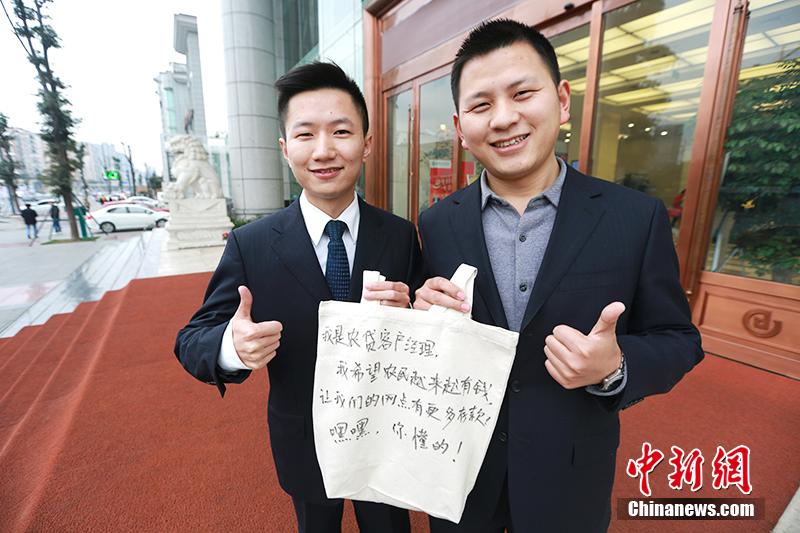 我是农贷客户经理，
我希望农民越来越有钱，
让我们的网点有更多存款！
嘿嘿，你懂的！
中新网
Chinanews.com